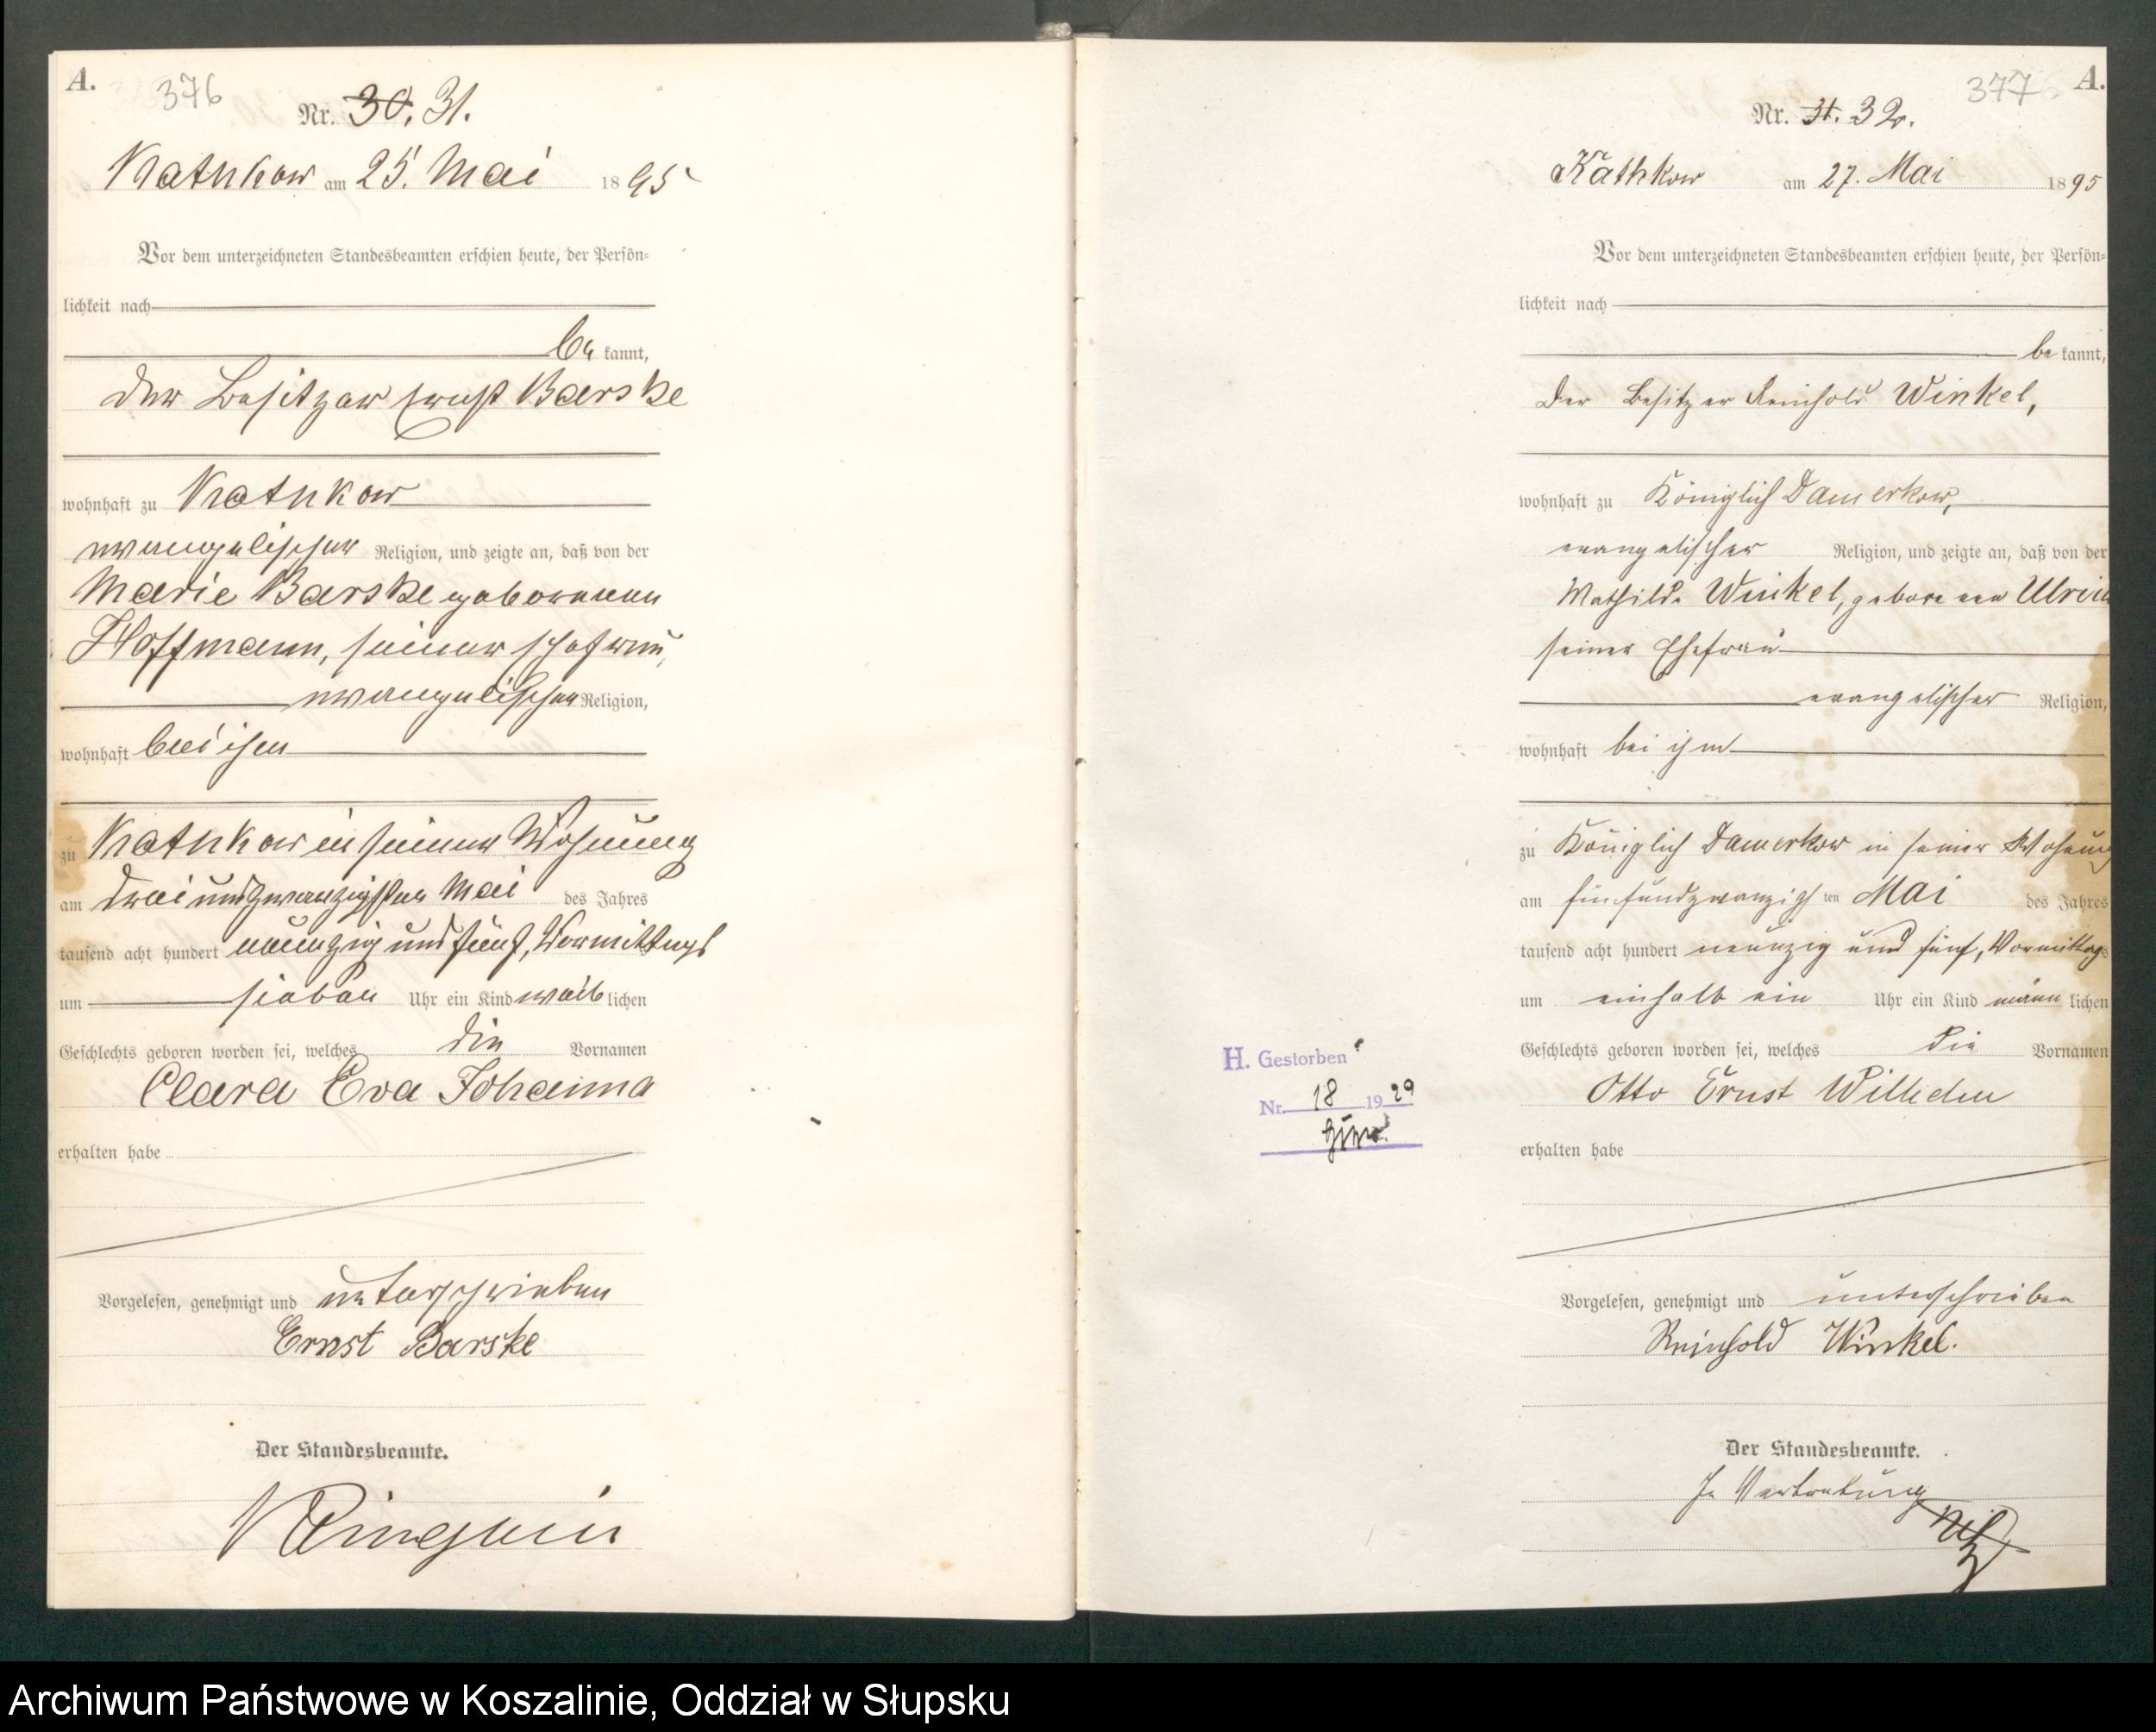 A.
376
Nr. 30. 31.
Kathkow am 25. Mai 1895
Vor dem unterzeichneten Standesbeamten erschien heute, der Persön-
lichkeit nach
be kannt,
der Besitzer Ernst Barske
wohnhaft zu Kathkow
evangelischer Religion, und zeigte an, daß von der
Marie Barske geborenen
Hoffmann, seiner Ehefrau,
evangelischer Religion,
wohnhaft bei ihm
zu Kathkow in seiner Wohnung
am dreiundzwanzigsten Mai des Jahres
tausend acht hundert neunzig und fünf, Vormittags
um sieben Uhr ein Kind weib lichen
Geschlechts geboren worden sei, welches die Vornamen
Clara Eva Johanna
erhalten habe
Vorgelesen, genehmigt und unterschrieben
Ernst Barske
Der Standesbeamte.
A.
377
Nr. 31. 32.
Kathkow am 27. Mai 1895
Vor dem unterzeichneten Standesbeamten erschien heute, der Persön-
lichkeit nach
be kannt,
Der Besitzer Reinhold Winkel,
wohnhaft zu Königlich Damerkow,
evangelischer Religion, und zeigte an, daß von der
Mathilde Winkel, geborenen
seiner Ehefrau
evangelischer Religion,
wohnhaft bei ihm
zu Königlich Damerkow in seiner Wohnung
am fünfundzwanzigsten Mai des Jahres
tausend acht hundert neunzig und fünf, Vormittags
um einhalb ein Uhr ein Kind männ lichen
Geschlechts geboren worden sei, welches die Vornamen
Otto Ernst Wilhelm
erhalten habe
H. Gestorben
Nr. 18 1929
Vorgelesen, genehmigt und unterschrieben
Reinhold Winkel.
Der Standesbeamte.
In Vertretung
Archiwum Państwowe w Koszalinie, Oddział w Słupsku